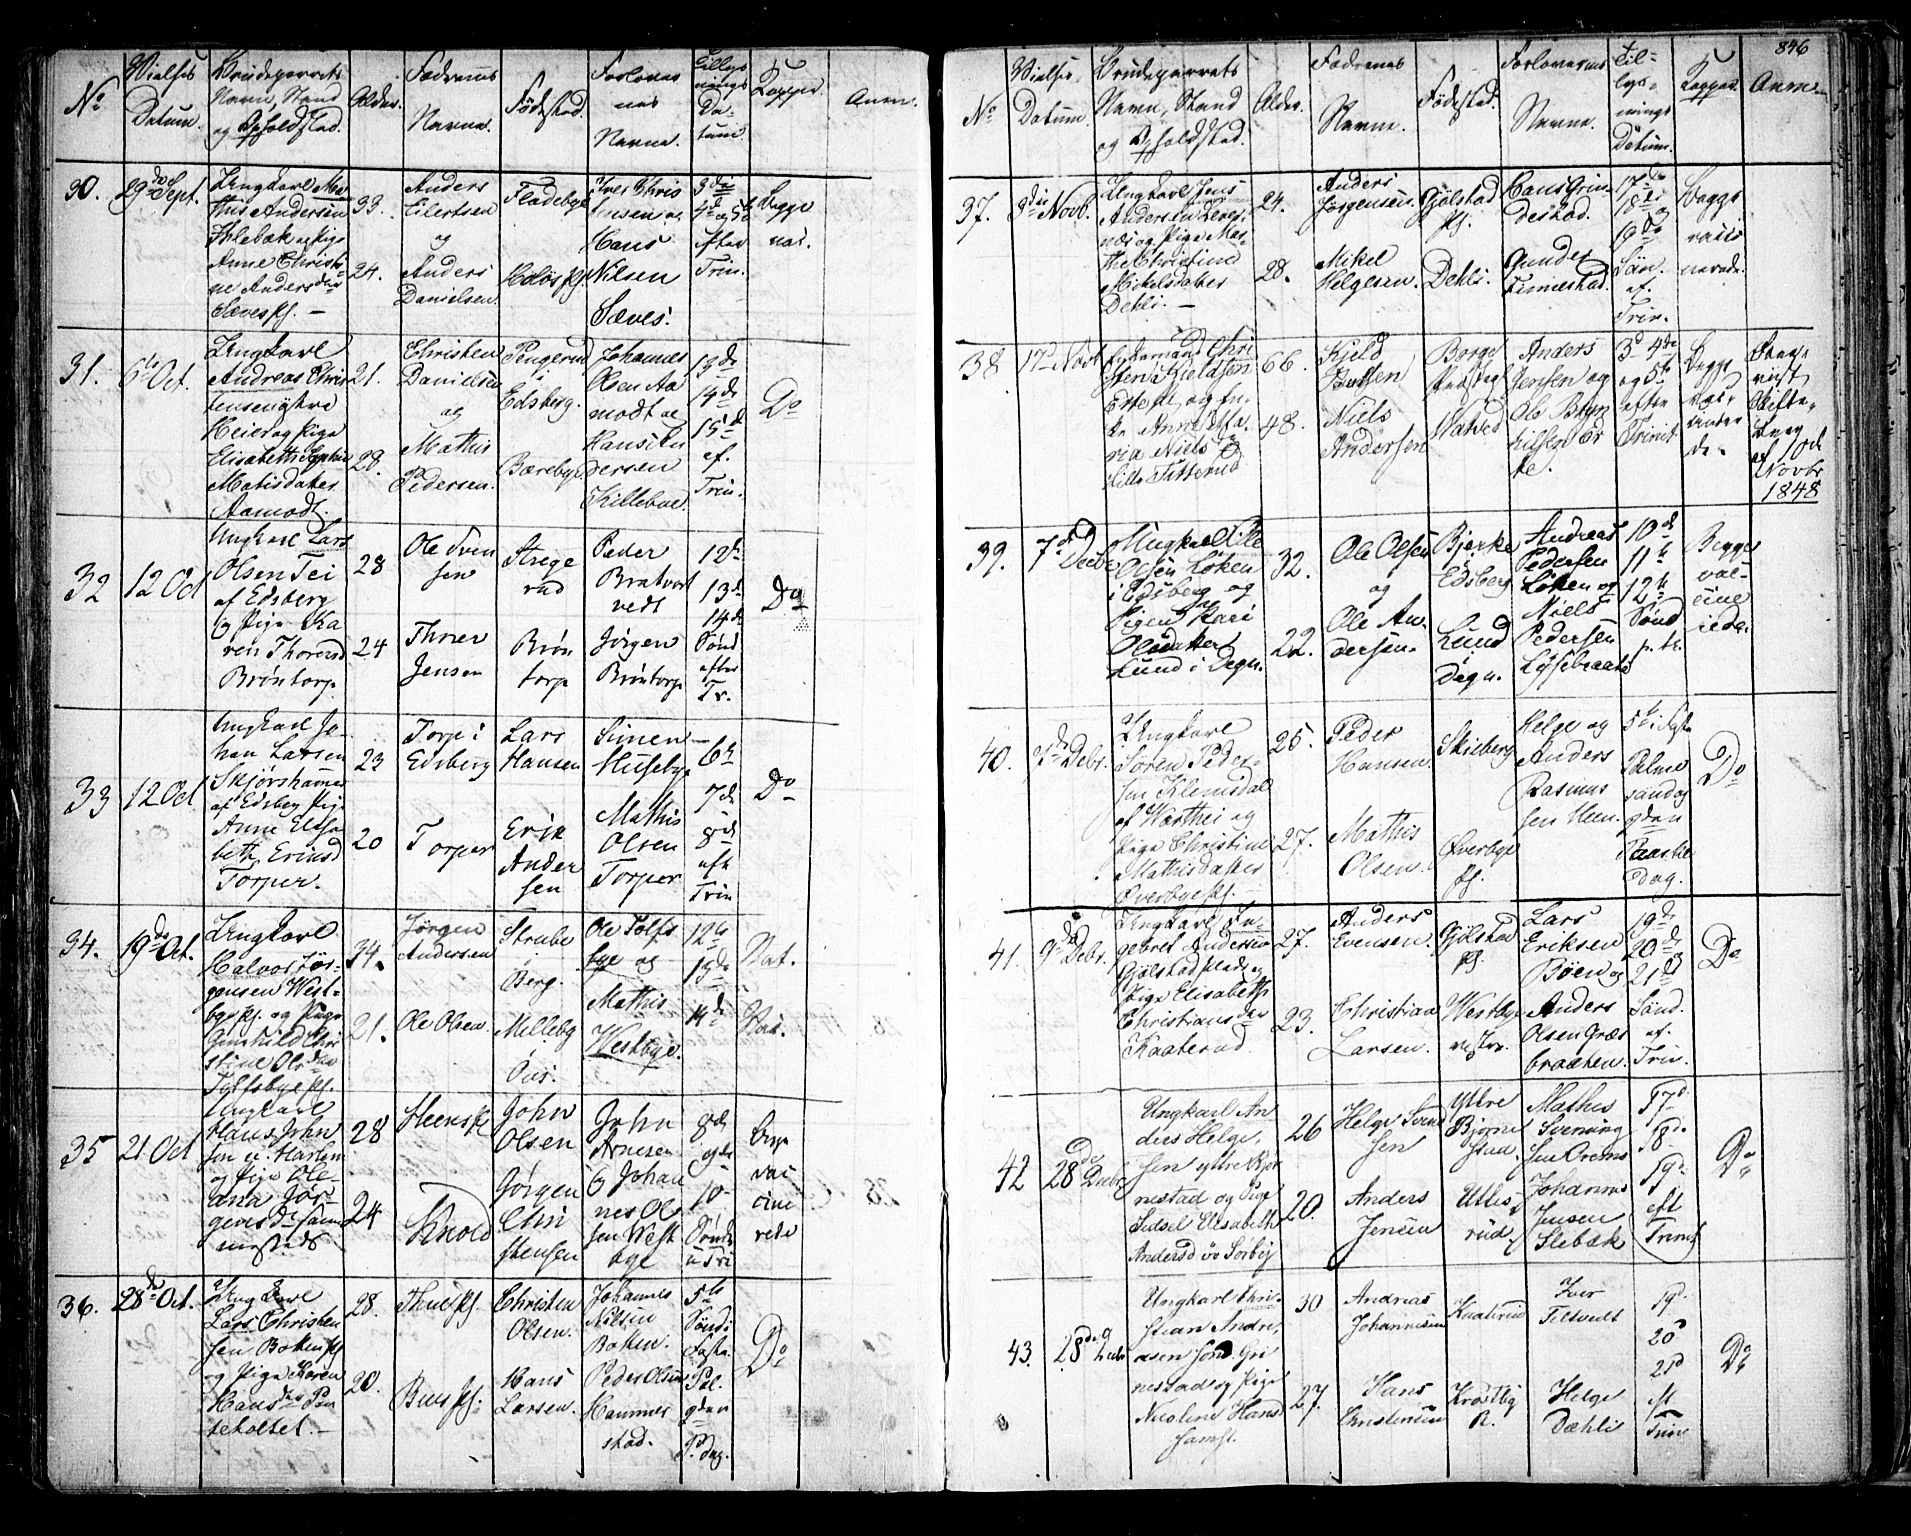 846
No
Vielses
Datum.
Brudeparrets
Navn, Stand
og Opholdsted.
Alder.
Fædrenes
Navne.
Fødested.
Forlovernes
Navne.
Tillysnings
Datum
Kopper.
Anm.
30.
29de Sept.
Ungkarl Mathis Andersen
og Pige
Anne Christine Andersdtr
Sæves pl.
33.
24.
Anders
Eilertsen
og
Anders
Danielsen.
Fladebye
Iver Christensen og
Hans
Nilsen
Sæves.
3die
4de og 5te
efter
Trin.
Begge
nat.
31.
6te Oct.
Ungkarl
Andreas Christensen
Heier og Pige
Elisabeth Sophie
Matisdatter
Aamodt.
21.
28.
Christen
Danielsen
og
Mathis
Pedersen.
Pengerud
i
Edsberg.
Bærebye
Johannes
Olsen Aamodt og
Hans Andersen
Killebae.
13de
14de
15de
ef.
Trin.
Do
32
12 Oct
Ungkarl Lars
Olsen Tei
af Edsberg
og Pige Karen Thorersd
Brøntorp
28
24
Ole Svensen
Thorer
Jensen
Stregerud
Brøntorp
Peder
Bratvortvedt
Jørgen
Brøntorp
12te
13de
14de
Sønd
efter
Tr.
Do
33
12 Oct
Ungkarl Johan Larsen
Skjørshamer
af Edsberg Pige
Anne Elisabeth Eriksd
Torper.
23
20
Torp i
Edsberg
Torper
Lars
Hansen
Erik
Andersen
Simen
Husebye
Mathis
Olsen
Torper
6te
7de
8de
eft
Trin
Do
34.
19de Oct.
Ungkarl
Halvor Jørgensen Westbye pl. og Pige
Gunhild Christine Olsdatter
Tolfsbye pl.
34.
21.
Jørgen
Andersen
Ole Olsen.
Strube
i
Berg.
Millebg
i
Ous.
Ole Tolfsbye og
Mathis
Westbye.
12te
13de
14de
Nat.
Vac.
35
21 Oct
Ungkarl
Hans Johnsen
og Pige Oleana Jørgensd
sammesteds
28
24
Steenspl
Knold
John
Olsen
Jørgen
Christensen
John
Arnesen
og Johannes Olsen Westbye
8de
9de
10
Sønd
e Tri
Begge
vaccinerede
36.
28de Oct.
Ungkarl
Lars Christensen Boken pl
og Pige Karen
Hansdtr
28.
20.
Christen
Olsen.
Hans
Larsen.
Johannes
Nilsen
Boken.
Peder Olsen
Hammerstad.
5te
Sønd i
Faste.
Pal.
g den
P. dag.
Do
No
Vielses
Datum.
Brudeparrets
Navn, Stand
og Opholdsted.
Alder.
Fædrenes
Navne.
Fødested.
Forlovernes
Navne.
Tillysnings
Datum.
Kopper.
Anm.
37.
3die Novb.
Ungkarl Jens
Andersen
og Pige Mathe Christine
Mikelsdatter
Dehli.
24.
28.
Anders
Jørgensen
Mikel
Helgesen.
Gjølstad
pl.
Dehli.
Hans Grindestad.
Gunder
Finnestad.
17de
18de og
19de
Søn.
ef.
Trin.
Begge
vaccinerede.
38
17d Novb
Enkemand Christen Kjeldsen
Ertene og Enke Anne Maria Nielsd
Lille Titterud
66.
48.
Kjeld
Niels
Andersen
Borge
Præstegl
Natved
Anders
Jensen og
Ole Brynhilsen Erte.
3d 4de
og 5te
efter
Trinit.
Begge
vaccinerede.
Skiftebrev
af 10de
Novbr
1848
39.
7de Decbr
Ungkarl Nils
Olsen Løken
i Edsberg og
Pigen Kari
Olsdatter
Lund i Degn.
32.
22.
Ole Olsen
og
Ole Andersen.
Bjerke
i
Edsberg
Lund
i
Degn.
Andreas
Pedersen
Løken og
Niels
Pedersen
Lysebraate
10de
11te
12te
Sønd
p. tr.
Begge
vaccinerede.
40.
7de Debr.
Ungkarl
Søren Pedersen Klemsdal
af Warthei og
Pige Christine
Mathisdatter
Øverbye pl.
25.
27.
Peder
Hansen.
Mathis
Olsen.
Skieberg
Øverbye
pl.
Helge og
Anders
Rasmussen Heen.
5te i Faste
Palme
sønd og
2den
Paaske
Dag.
Do
41.
9de Debr.
Ungkarl Engebret Andersen
Gjølstad plads og
Pige Elisabeth
Christiansdtr
Kaaterud.
27.
23.
Anders
Evensen.
Christian
Larsen.
Gjølstad
pl.
Westbye
vestre.
Lars
Eriksen
Bøen og
Anders
Olsen Græsbraaten.
19de
20de
21de
Sønd.
ef.
Trin.
Do
42
28de Decbr
Ungkarl Anders Helgesen yttre Bjørnestad og Pige
Sidsel Elisabeth
Andersd øv Sørby
26
20.
Helge Svendsen
Anders
Jensen
Yttre
Bjørnestad
Ullisrud
Mathis
Svenningsen
Johannes
Jensen
Slebæk
17d
18d.
19d.
eft
Trinit
Do
43.
28de Decbr
Ungkarl Christian Andreasen
og Pige
Nicoline Hansd
samst.
30
27.
Andreas
Johannesen
Hans
Christensen
Kaaterud
Iver
Tiltvedt
Helge
Dæhli
19d.
20d
21d
eft
Trin
Do